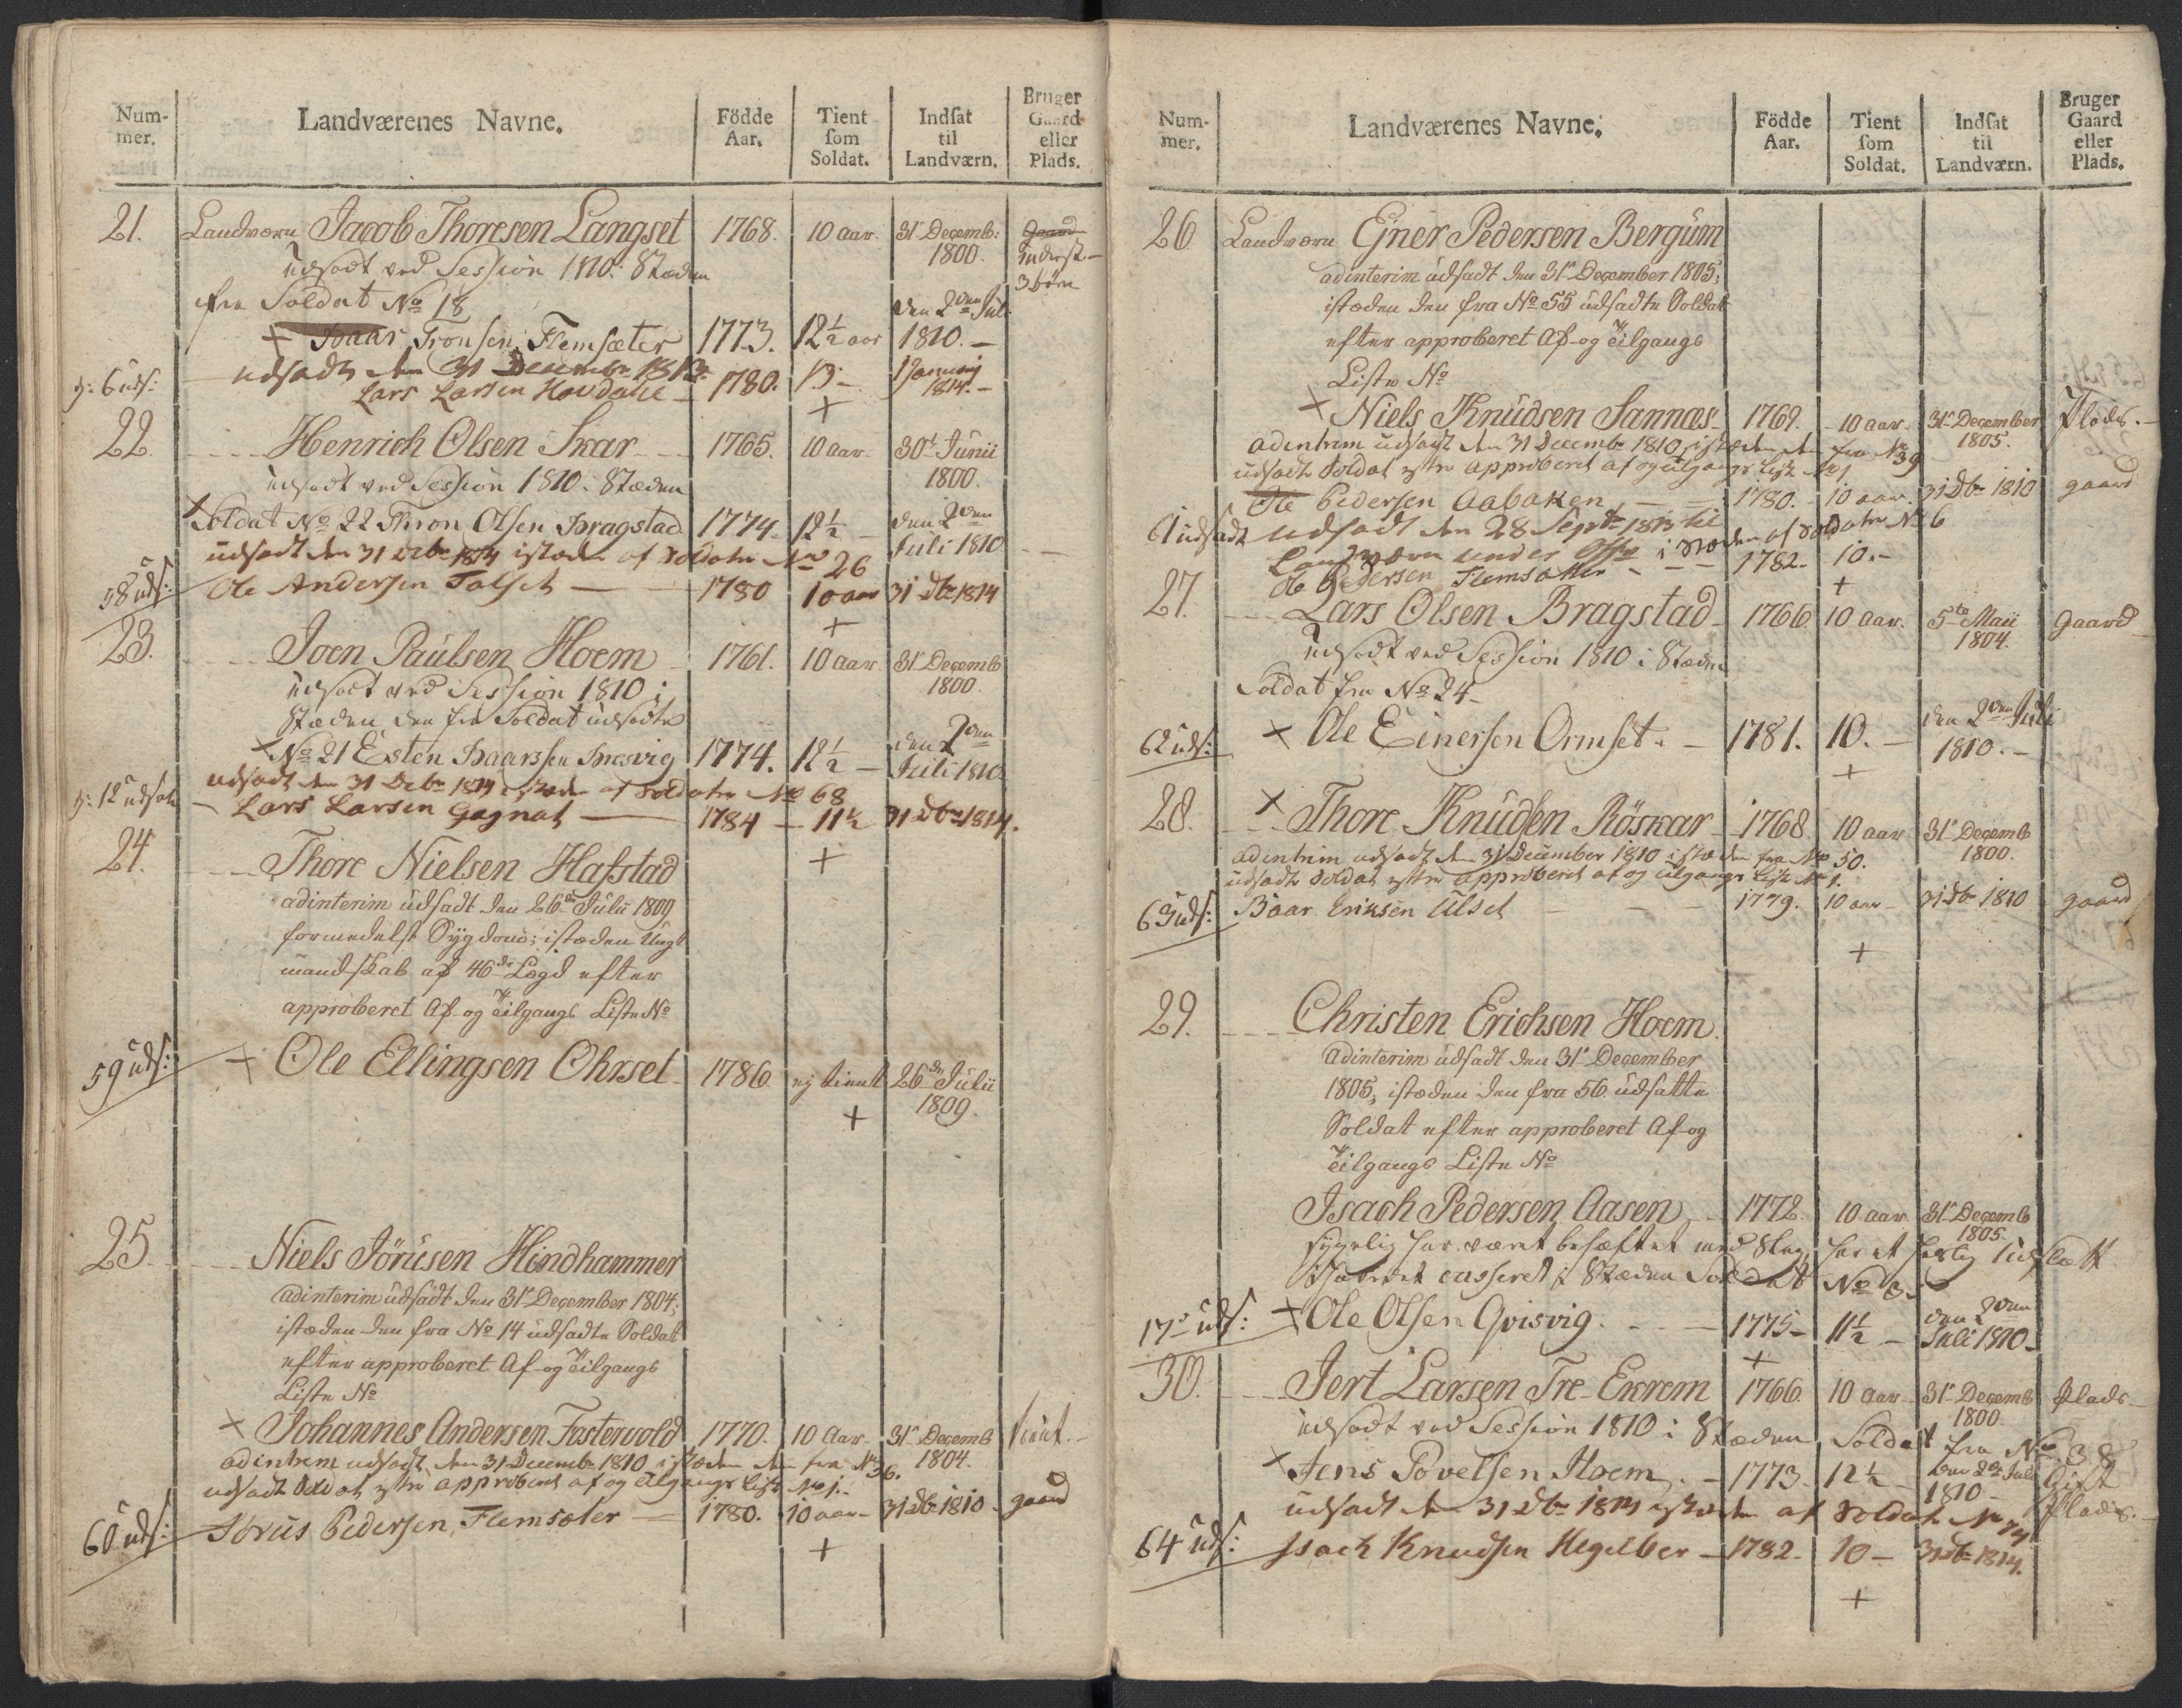 Num-mer. Landværenes Navne. Födde Aar. Tient som Soldat. Indsat til Landværn. Bruger Gaard eller Plads.
21. Landværn Jacob Thoresen Langset 1768. 10 aar. 31 Decemb: 1800. Gaard Inderst 3 börn
udsadt ved Session 1810 i Stæden
fra Soldat No 18
+ Baar Tronsen Flemsæter 1773. 12½ aar den 2den Juli 1810.
udsadt den 31 December 1813.
6 uds: Lars Larsen Hovdahl 1780. 13 1 Januarij 1814.
+
22. Henrich Olsen Skar 1765. 10 aar 30t Junii 1800.
udsadt ved Session 1810 i Stæden
+ Soldat No 22 Thron Olsen Bragstad 1774 12½ den 2den Juli 1810
udsadt den 31 Decbr 1814 istæden af Soldatr No 26
58 uds: Ole Andersen Talset 1780 10 aar 31 Dbr 1814
+
23. Joen Paulsen Hoem 1761. 10 aar. 31 Decemb 1800.
udsadt ved Session 1810 i
Stæden den fra Soldat udsadte
+ No 21 Esten Baarssen 1774. 12½ den 2den Juli 1810
udsadt den 31 Decbr 1814 istæden af Soldatr No 68
12 udsat Lars Larsen Gagnat 1784 11½ 31 Dbr 1814.
+
24. Thore Nielsen Hafstad
adinterim udsadt den 26de Julii 1809
formedelst Sygdom; istæden Ungt
mandskab af 46de Lægd efter
approberet Af- og Tilgangs Liste No
59 uds: + Ole Ellingsen Ohrset 1786. ej tient 26de Julii 1809.
+
25. Niels Jörusen Hindhammer
adinterim udsadt den 31 December 1804,
istæden den fra No 14 udsadte Soldat
efter approberet Af- og Tilgangs
Liste No
+ Johannes Andersen Fastervold 1770. 10 Aar 31 Decemb 1804.
adinterim udsadt den 31 Decembr 1810 istæden den fra No 36.
udsadt Soldat efter approberet af og tilgangs liste No 1.
60 uds: Jörus Pedersen Flemsæter 1780. 10 aar 31 Dbr 1810 gaard
+
Num-mer. Landværenes Navne. Födde Aar. Tient som Soldat. Indsat til Landværn. Bruger Gaard eller Plads.
26 Landværn Ejner Pedersen Bergum
adinterim udsadt den 31 December 1805,
istæden den fra No 55 udsadte Soldat
efter approberet Af- og Tilgangs
Liste No
+ Niels Knudsen Sannæs 1769. 10 aar 31 December 1805. Plads.
adinterim udsadt den 31 Decembr 1810 istæden den fra No 39
udsadt Soldat efter approberet af og tilgangs liste No 1.
Ole Pedersen Aabakken 1780. 10 aar 31 Dbr 1810 gaard
61 udsadt udsadt den 28 Septbr 1813 til
Landværn under i stæden af Soldatr No 6
Ole Pedersen Flemsæter 1782 10.
+
27. Lars Olsen Bragstad 1766 10 aar. 5te Maii 1804. Gaard
udsadt ved Session 1810 i Stæden
Soldat fra No 24
62 uds: + Ole Einersen Ormset 1781. 10. den 2den Juli 1810.
+
28. + Thore Knudsen Röskar 1768. 10 aar 31 Decemb 1800.
adinterim udsadt den 31 December 1810 i stæden fra No 50.
udsadt Soldat efter approberet af og tilgangs liste No 1.
63 uds: Baar Eriksen Ulset 1779. 10 aar 31 Dbr 1810 gaard
+
29. Christen Erichsen Hoem.
adinterim udsadt den 31 December
1805, istæden den fra 56 udsatte
Soldat efter approberet Af- og
Tilgangs Liste No
Isach Pedersen Aasen 1772. 10 aar 31 Decemb 1805.
sygelig har været behæftet med Slag, har et udslætt
casseret i Stæden Soldat No 8
17 uds: + Ole Olsen Gvisvig 1775 11½ den 2den Juli 1810
+
30. Jert Larsen Tre-Ekrem 1766. 10 aar 31 Decemb 1800. Plads
udsadt ved Session 1810 i Stæden Soldat fra No 38
+ Jens Povelsen Hoem. 1773. 12½ den 2de Juli 1810 Gift Plads.
udsadt den 31 Dbr 1814 istæden af Soldat No 74
64 uds: Isach Knudsen Hegelber 1782 10 31 Dbr 1814.
+